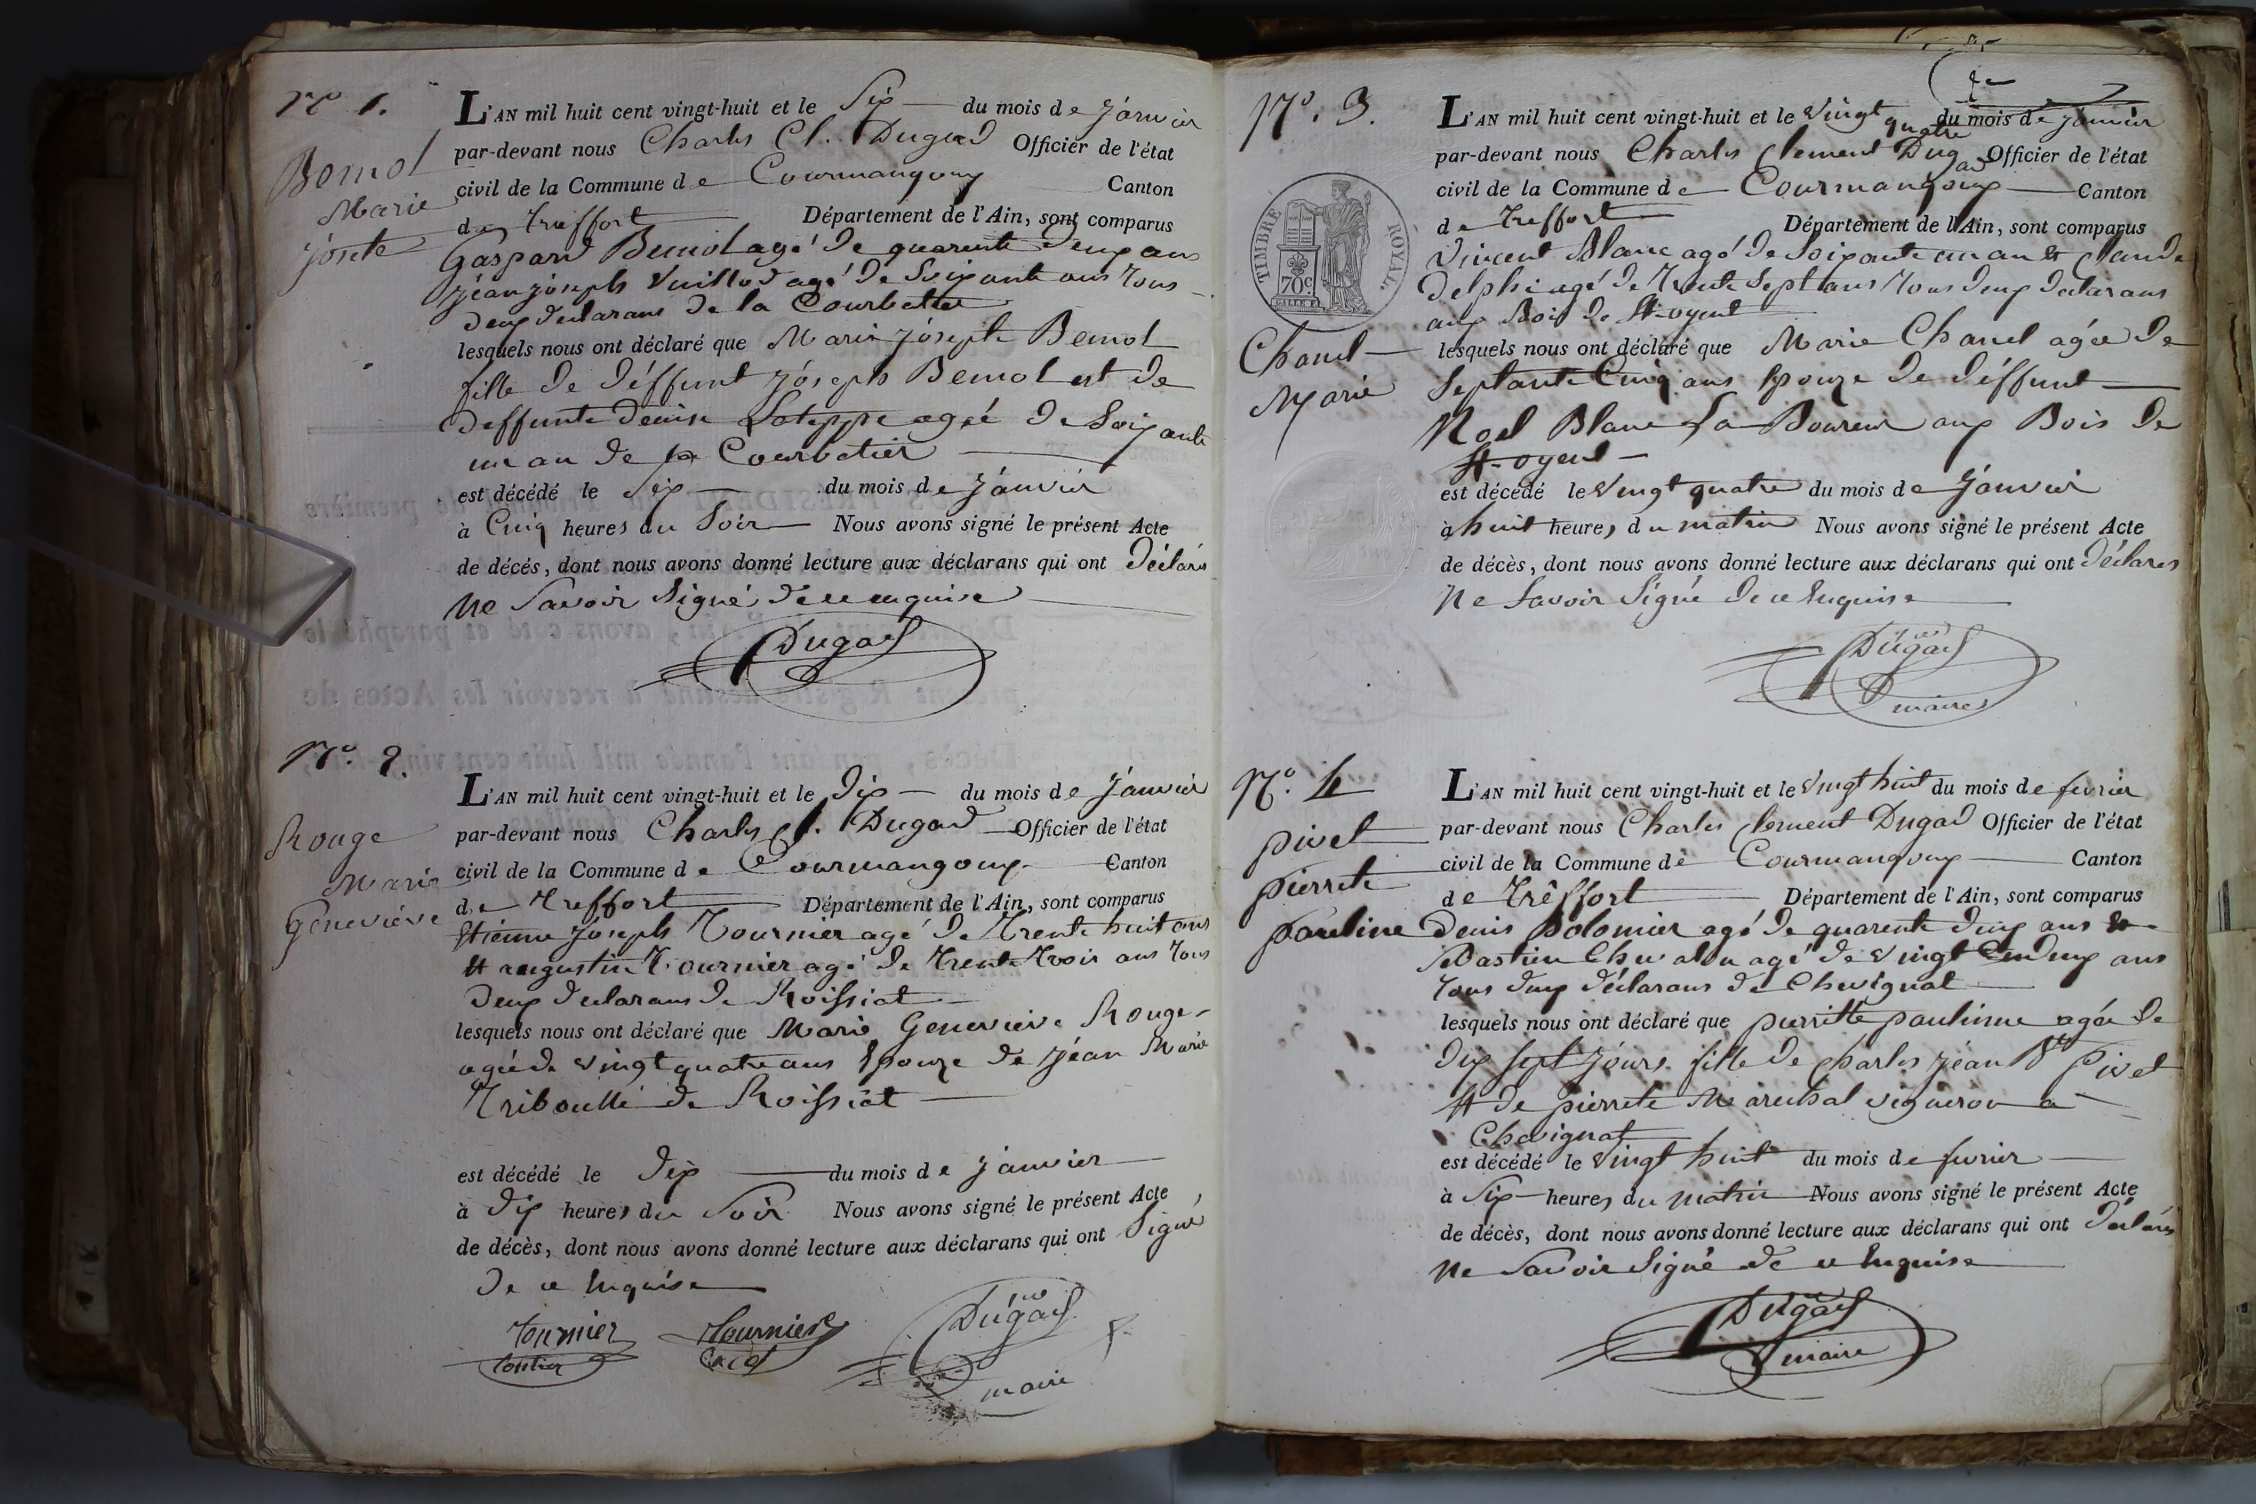 N.º 1.
Bemol
Marie
Josete
L'AN mil huit cent vingt-huit et le Six du mois de janvier
par-devant nous Charles Cl. Dugad Officier de l'état
civil de la Commune de Courmangoux Canton
de Treffort Département de l'Ain, sont comparus
Gaspard Bemol agé de quarente deux ans
jéan jóseph Vuillod agé de Soixante ans Tous
deux declarans de la Courbatier
lesquels nous ont déclaré que Marie jósephte Bemol
fille de déffunt jóseph Bemol et de
deffunte denise agée de Soixante
un an de la Courbatier
est décédé le Six du mois de janvier
à Cinq heures du Soir Nous avons signé le présent Acte
de décés, dont nous avons donné lecture aux déclarans qui ont déclarés
Ne Savoir Signé de ce enquise
Dugad
N.º 2.
Rouge
Marie
Geneviéve
L'AN mil huit cent vingt-huit et le Dix du mois de janvier
par-devant nous Charles Cl. Dugad Officier de l'état
civil de la Commune de Courmangoux Canton
de Treffort Département de l'Ain, sont comparus
Etienne jóseph Tournier agé de Trente huit ans
et augustin Tournier agé de Trente Trois ans Tous
deux declarans de Roissiat
lesquels nous ont déclaré que Marie Geneviéve Rouge
agée de vingt quatre ans Epouze de jéan Marie
Triboullé de Roissiat
est décédé le Dix du mois de janvier
à Dix heures du Soir Nous avons signé le présent Acte
de décès, dont nous avons donné lecture aux déclarans qui ont Signé
de ce Enquise
Tournier Tournier Dugad
maire
N.º 3.
TIMBRE ROYAL.
70 c.
Chanel
Marie
L'AN mil huit cent vingt-huit et le Vingt quatre du mois de janvier
par-devant nous Charles Clement Dugad Officier de l'état
civil de la Commune de Courmangoux Canton
de Treffort Département de l'Ain, sont comparus
Vincent Blanc agé de Soixante un an et Claude
Delphi agé de Trente Sept ans Tous deux declarans
aux Bois de St-oyent
lesquels nous ont déclaré que Marie Chanel agée de
Septante Cinq ans Epouze de déffunt
Noel Blanc La Boureur aux Bois de
St-oyent
est décédé le Vingt quatre du mois de janvier
à huit heures du matin Nous avons signé le présent Acte
de décès, dont nous avons donné lecture aux déclarans qui ont déclarés
Ne Savoir Signé de ce Enquise
Dugad
maire
N.º 4
pivet
pierrete
pauline
L'AN mil huit cent vingt-huit et le Vingt huit du mois de fevrier
par-devant nous Charles Clement Dugad Officier de l'état
civil de la Commune de Courmangoux Canton
de Trêffort Département de l'Ain, sont comparus
Denis Bolomier agé de quarente deux ans et
Sebastien agé de vingt deux ans
Tous deux déclarans de Chevignat
lesquels nous ont déclaré que pierrette paulinne agée de
dix Sept jóurs fille de Charles jéan Bte Pivet
et de pierrete Marechal vigneron a
Chevignat
est décédé le Vingt huit du mois de fevrier
à Six heures du matin Nous avons signé le présent Acte
de décès, dont nous avons donné lecture aux déclarans qui ont déclarés
Ne Savoir Signé de ce Enquise
Dugad
maire